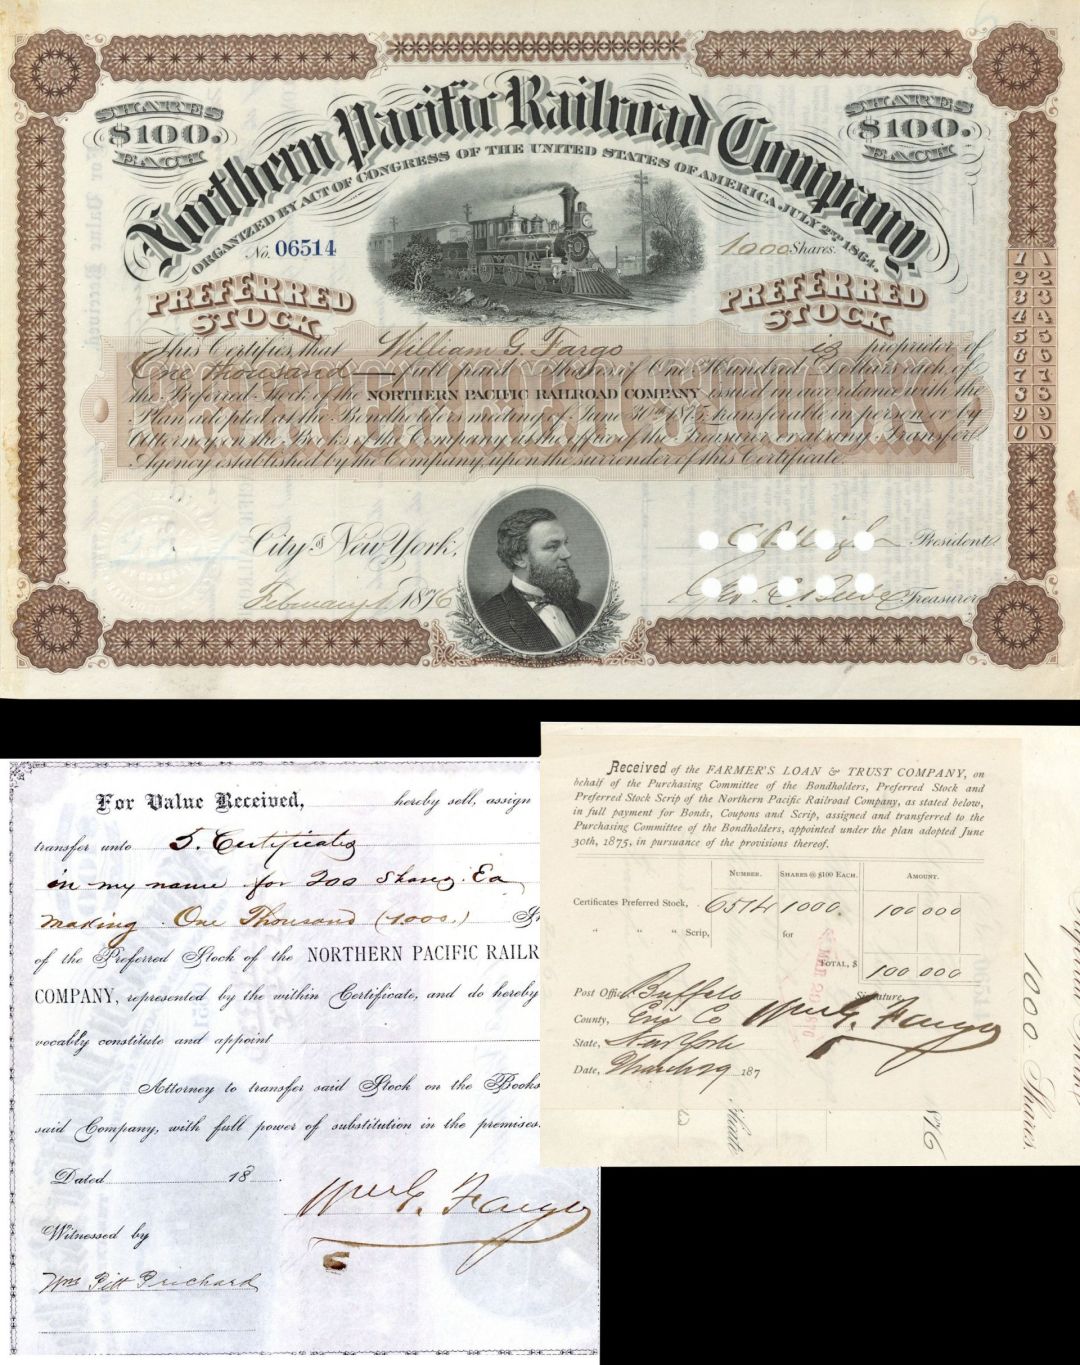 SHARES
$100.
EACH
SHARES
$100.
EACH
Northern Pacific Railroad Company,
ORGANIZED BY ACT OF CONGRESS OF THE UNITED STATES OF AMERICA JULY 2ND 1864.
No. 06514
1000 Shares.
PREFERRED
STOCK
PREFERRED
STOCK
This Certifies, that William G. Fargo is proprietor of
One thousand — full paid Shares of One Hundred Dollars each of
the Preferred Stock of the NORTHERN PACIFIC RAILROAD COMPANY issued in accordance with the
Plan adopted at the Bondholders meeting of June 30th 1875, transferable in person or by
Attorney on the Books of the Company at the office of the Treasurer or at any Transfer
Agency established by the Company, upon the surrender of this Certificate.
1 1
2 2
3 3
4 4
5 5
6 6
7 7
8 8
9 9
0 0
City of New York,
President.
February 1 1876
Geo. E. Beebe Treasurer
For Value Received, hereby sell, assign
transfer unto 5. Certificates
in my name for 200 Shares. Ea
making One Thousand (1.000.)
of the Preferred Stock of the NORTHERN PACIFIC RAILR
COMPANY, represented by the within Certificate, and do hereby
vocably constitute and appoint
Attorney to transfer said Stock on the Books
said Company, with full power of substitution in the premises.
Dated 18
Wm G. Fargo
Witnessed by
Wm Pitt Prichard
Received of the FARMER'S LOAN & TRUST COMPANY, on
behalf of the Purchasing Committee of the Bondholders, Preferred Stock and
Preferred Stock Scrip of the Northern Pacific Railroad Company, as stated below,
in full payment for Bonds, Coupons and Scrip, assigned and transferred to the
Purchasing Committee of the Bondholders, appointed under the plan adopted June
30th, 1875, in pursuance of the provisions thereof.
NUMBER. SHARES @ $100 EACH. AMOUNT.
Certificates Preferred Stock, 6514 1000. 100 000
" " " Scrip, for
TOTAL, $ 100 000
Post Office, Buffalo Signature,
County, Erie Co Wm G. Fargo
State, New York
Date, March 29 187
1000 Shares.
1876